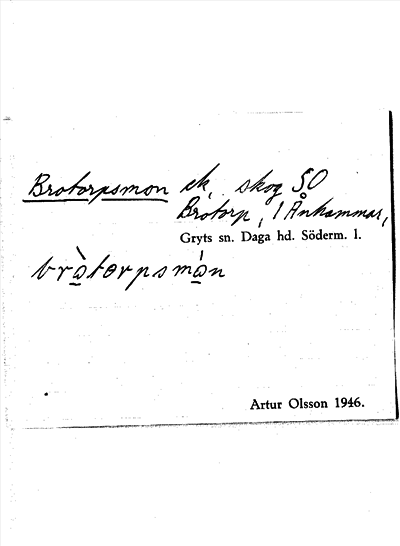 Brotorpsmon ek, skog SO
Brotorp, 1 Ånhammar,
Gryts sn. Daga hd. Söderm. l.
bròtorpsmón
Artur Olsson 1946.